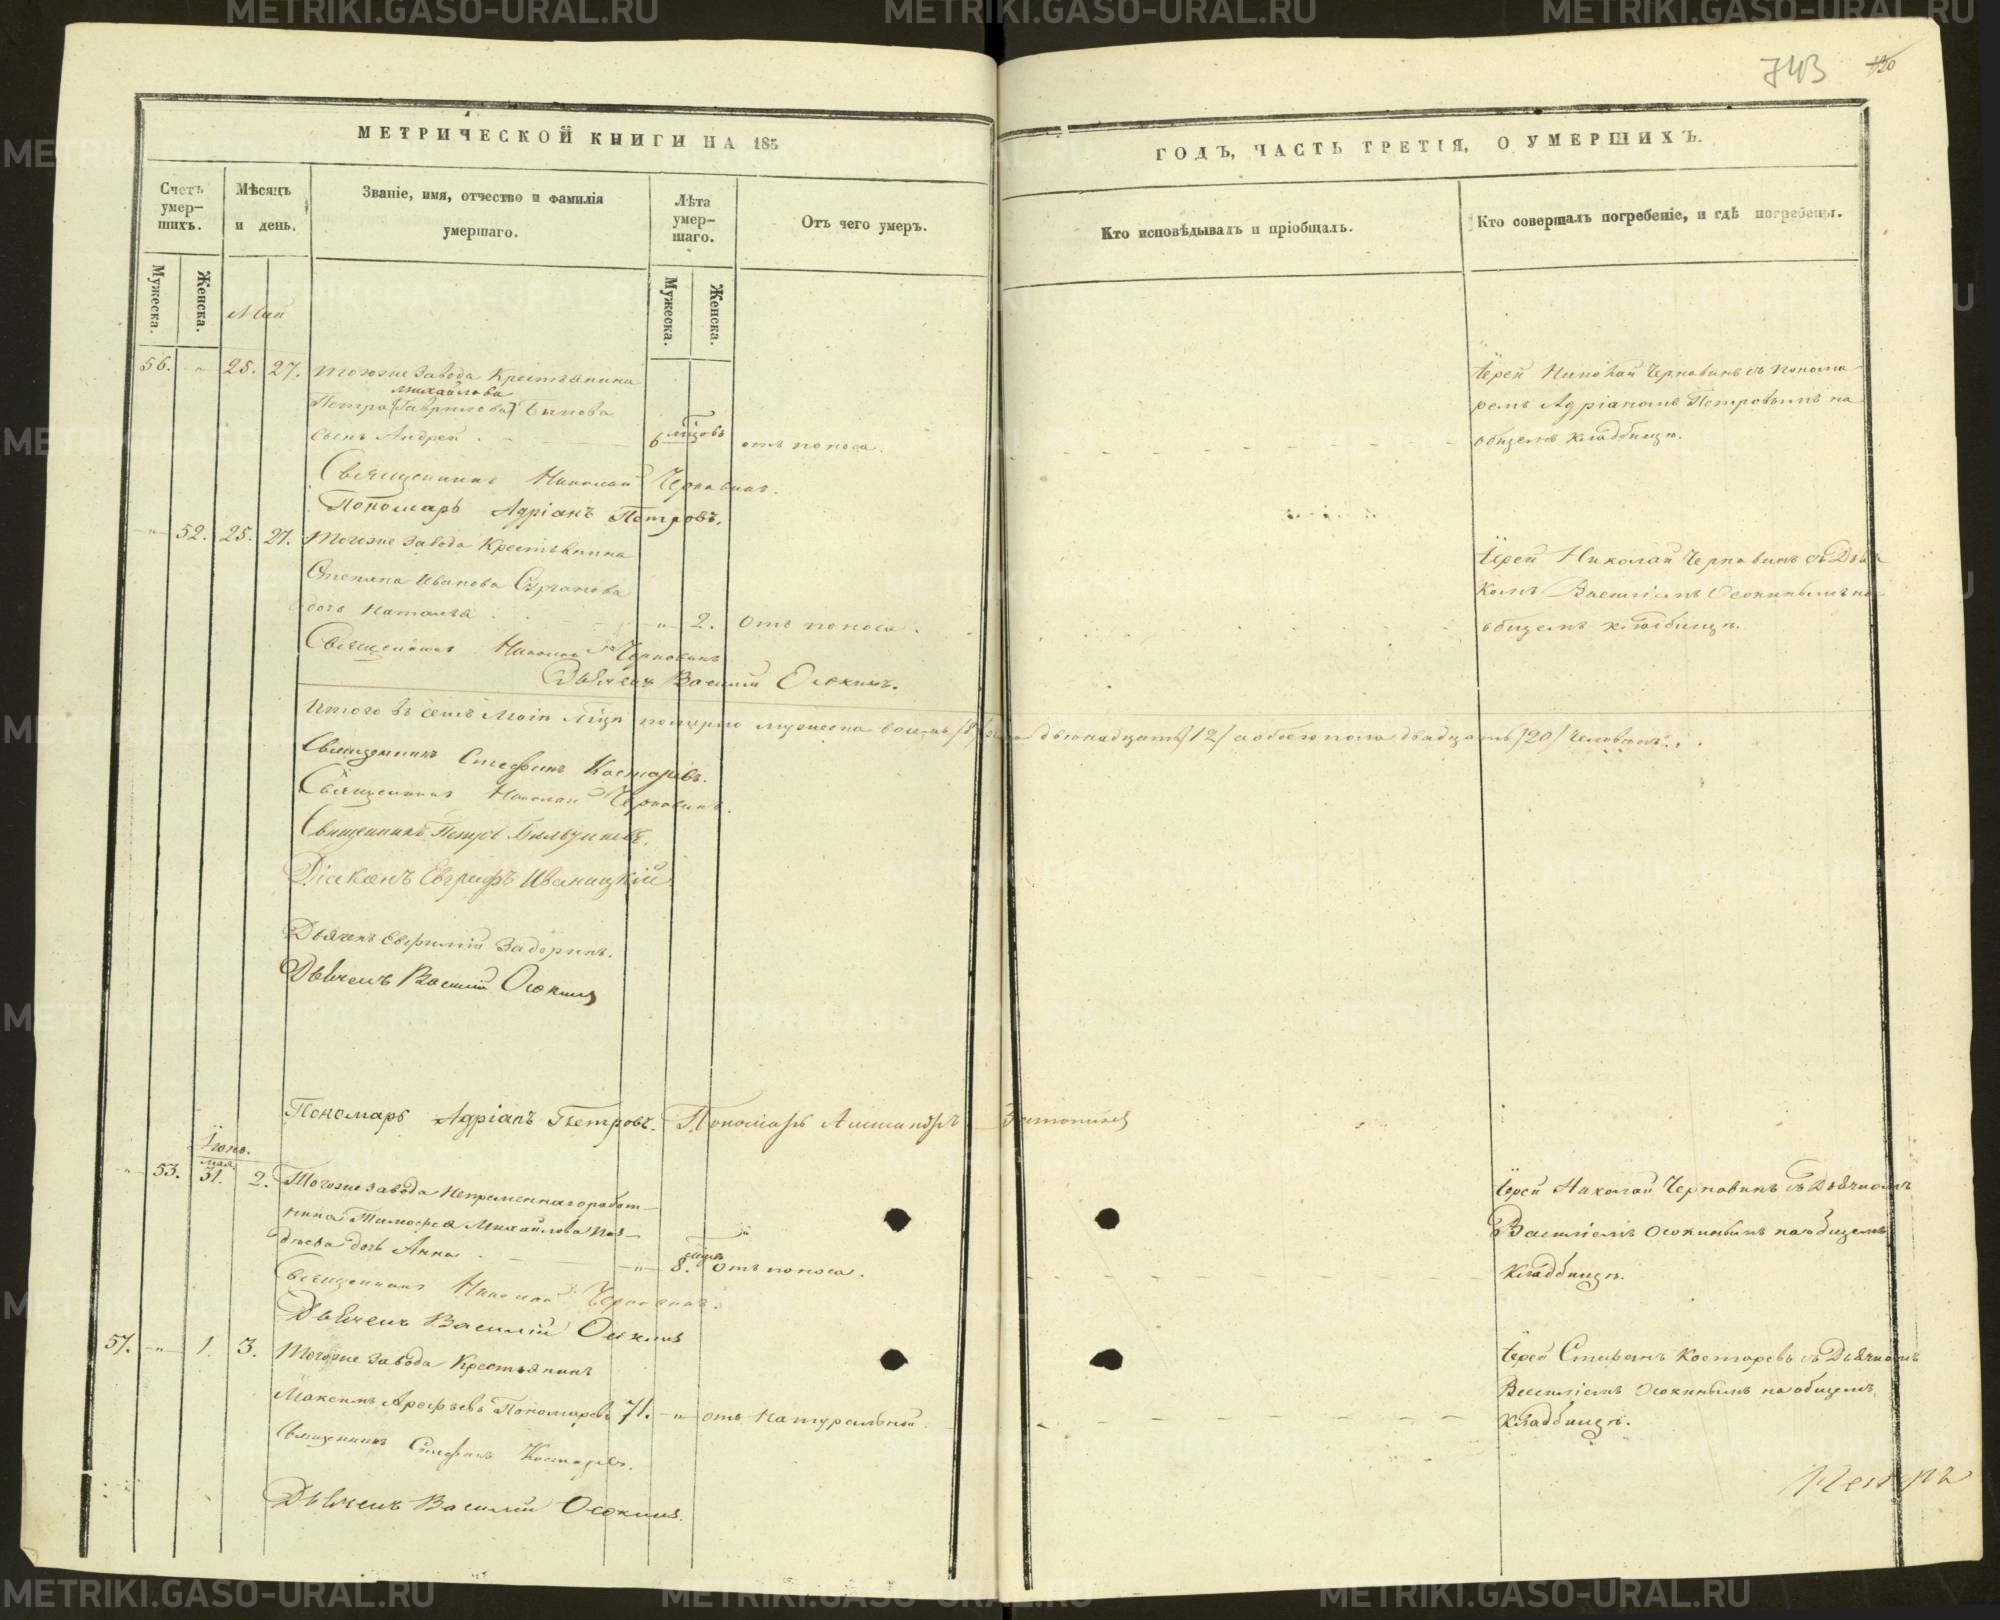 743
120
МЕТРИЧЕСКОЙ КНИГИ НА 185
ГОДЪ, ЧАСТЬ ТРЕТІЯ, О УМЕРШИХЪ.
Счетъ умер-шихъ.
Мѣсяцъ и день.
Званіе, имя, отчество и фамилія умершаго.
Лѣта умер-шаго.
Отъ чего умеръ.
Кто исповѣдывалъ и пріобщалъ.
Кто совершалъ погребеніе, и гдѣ погребены.
Мужеска.
Женска.
Мужеска.
Женска.
Май
56. -"- 25. 27. Тогоже завода Крестьянина
Михайлова
Петра (Гаврилова) Быкова
сынъ Андрей. 6 мцовъ отъ поноса.
Іерей Николай Чернавинъ съ Понома-
ремъ Адріаномъ Петровымъ на
общемъ кладбищѣ.
Священникъ Николай Чернавинъ.
Пономарь Адріанъ Петровъ.
-"- 52. 25. 27. Тогоже завода Крестьянина
Степана Иванова
дочь Наталья. -"- 2. Отъ поноса.
Іерей Николай Чернавинъ съ
Василіемъ Осокинымъ на
общемъ кладбищѣ.
Священникъ Николай Чернавинъ
Дьячекъ Василій Осокинъ.
Итого въ семъ Маіи мцѣ померло мужеска восемь /8/ двенадцать /12/ а обоего пола двадцать /20/ человѣкъ.
Священникъ Стефанъ Костаревъ.
Священникъ Николай Чернавинъ.
Священникъ Петръ
Діаконъ Евграфъ Иваницкій
Дьячекъ Евфимій Задоринъ.
Дьячекъ Василій Осокинъ
Пономарь Адріанъ Петровъ. Пономарь Александръ
Іюнь.
мая
-"- 53. 31. 2. Тогоже завода Непременнаго работ-
ника Тимофея Михайлова Поз-
дѣева дочь Анна -"- 8. мцъ отъ поноса.
Іерей Николай Чернавинъ съ Дьячкомъ
Василіемъ Осокинымъ на общемъ
кладбищѣ.
Священникъ Николай Чернавинъ.
Дьячекъ Василій Осокинъ
57. -"- 1. 3. Тогоже завода Крестьянинъ
Максимъ Арефьевъ Пономаревъ 71. -"- отъ натуральной
Іерей Стефанъ Костаревъ съ Дьячкомъ
Василіемъ Осокинымъ на общемъ
кладбищѣ.
Священникъ Стефанъ Костаревъ.
Дьячекъ Василій Осокинъ.
METRIKI.GASO-URAL.RU